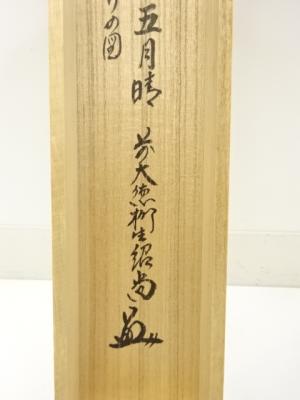 五月晴 前大徳柳生紹尚
りの図